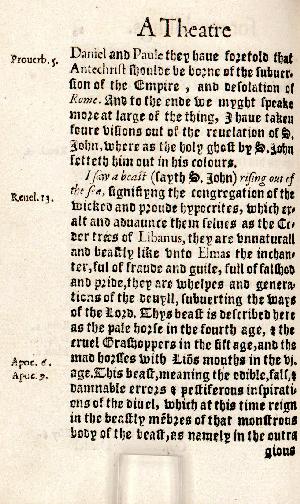 A Theatre
Prouerb. 5.
Daniel and Paule they haue foretold that
Antechrist shoulde be borne of the subuer-
sion of the Empire, and desolation of
Rome. And to the ende we myght speake
more at large of the thing, I haue taken
foure visions out of the reuelation of S.
John, where as the holy ghost by S. John
setteth him out in his colours.
I saw a beast (sayth S. John) rising out of
Reuel. 13.
the sea, signifiyng the congregation of the
wicked and proude hypocrites, which ex-
alt and aduaunce them selues as the Ce-
der trees of Libanus, they are vnnaturall
and beastly like vnto Elmas the inchan-
ter, ful of fraude and guile, full of falshod
and pride, they are whelpes and genera-
tions of the deuyll, subuerting the ways
of the Lord. Thys beast is described here
as the pale horse in the fourth age, & the
cruel Grashoppers in the fift age, and the
Apoc. 6.
mad horsses with Liōs mouths in the vi.
Apoc. 9.
age. This beast, meaning the odible, fals, &
damnable errors & pestiferous inspirati-
ons of the diuel, which at this time reign
in the beastly mēbres of that monstrous
body of the beast, as namely in the outra
gious